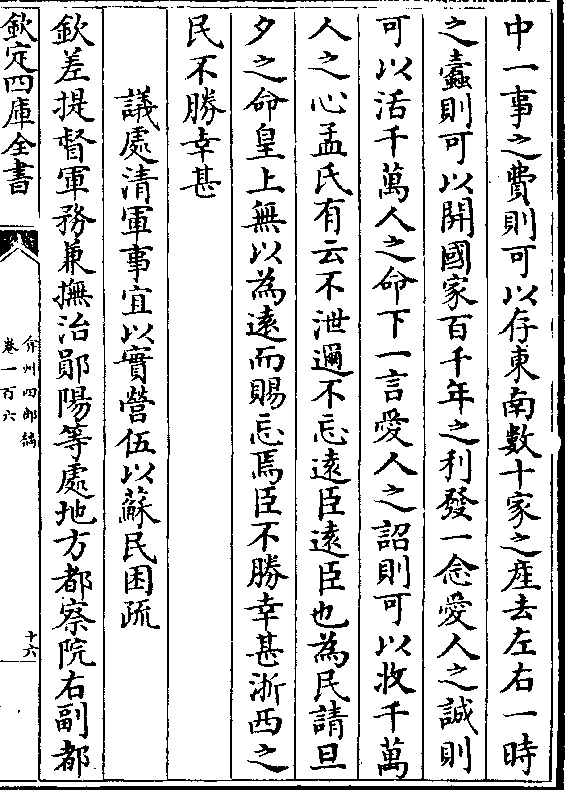 中一事之費則可以存東南數十家之産去左右一時
之蠧則可以開國家百千年之利發一念愛人之誠則
可以活千萬人之命下一言愛人之詔則可以收千萬
人之心孟氏有云不泄邇不忘遠臣遠臣也為民請旦
夕之命皇上無以為遠而賜忘焉臣不勝幸甚浙西之
民不勝幸甚
議處清軍事宜以實營伍以蘇民困疏
欽差提督軍務兼撫治鄖陽等處地方都察院右副都
欽定四庫全書
弇州四部稿
卷一百六
十六